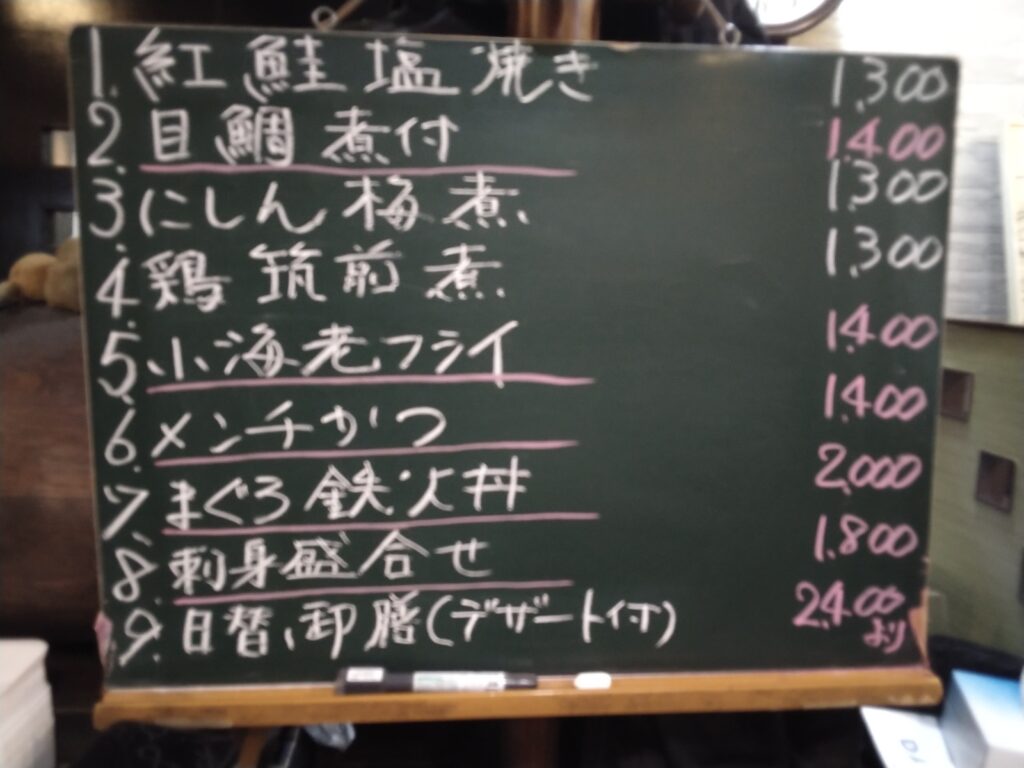 1. 紅鮭塩焼き 1,300
2. 目鯛煮付 1,400
3. にしん梅煮 1,300
4. 鶏筑前煮 1,300
5. 小海老フライ 1,400
6. メンチかつ 1,400
7. まぐろ鉄火丼 2,000
8. 刺身盛合せ 1,800
9. 日替、御膳(デザート付) 2,400
より